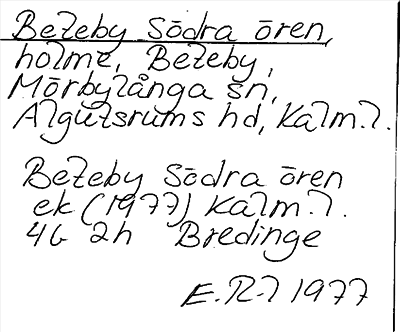 Beteby Södra ören,
holme, Beteby,
Mörbylånga sn,
Algutsrums hd, Kalm.l.
Beteby Södra ören
ek (1977) Kalm.l.
4G 2h Bredinge
E.R-l 1977